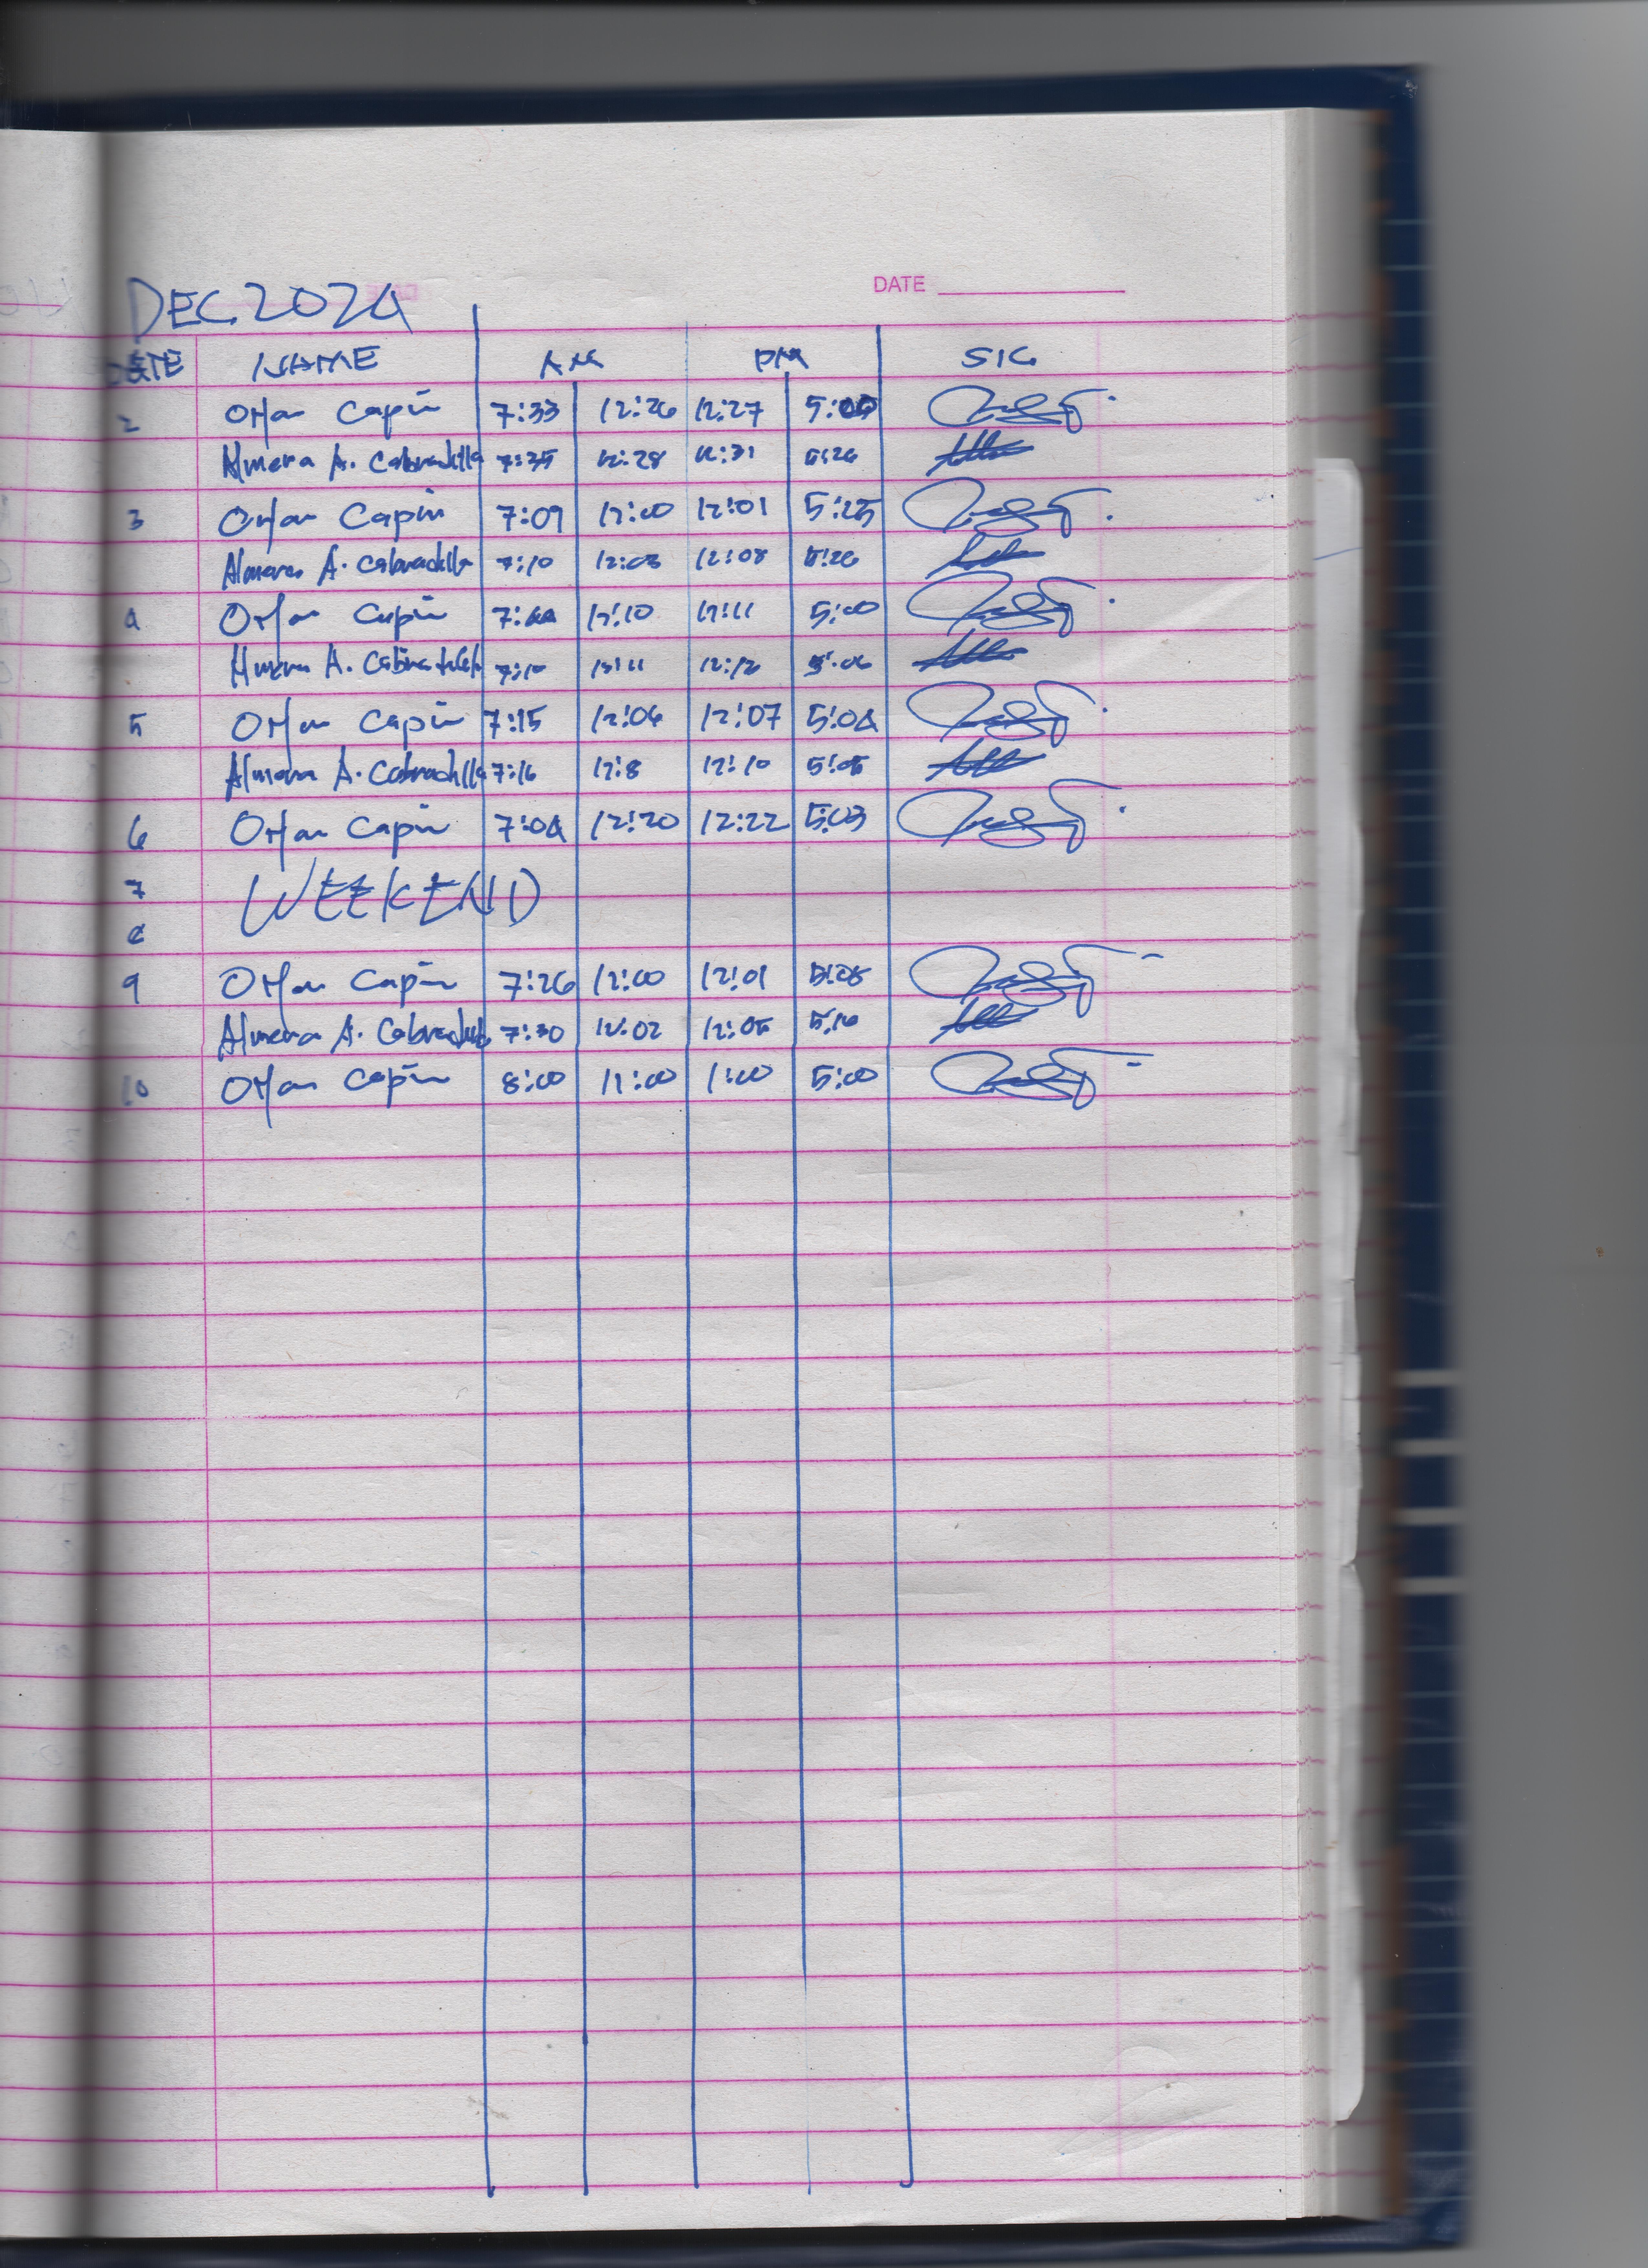 DATE
DEC. 2024
DATE NAME AM PM SIG
2 Orlan Capin 7:33 12:26 12:27 5:05
Almera A. Cabradilla 7:35 12:28 12:31 5:26
3 Orlan Capin 7:09 12:00 12:01 5:25
Almera A. Cabradilla 7:10 12:03 12:08 5:26
4 Orlan Capin 7:44 12:10 12:11 5:00
Almera A. Cabradilla 7:10 12:11 12:12 5:06
5 Orlan Capin 7:15 12:06 12:07 5:04
Almera A. Cabradilla 7:16 12:8 12:10 5:05
6 Orlan Capin 7:04 12:20 12:22 5:03
7 WEEKEND
8
9 Orlan Capin 7:26 12:00 12:01 5:08
Almera A. Cabradilla 7:30 12:02 12:05 5:16
10 Orlan Capin 8:00 12:00 1:00 5:00